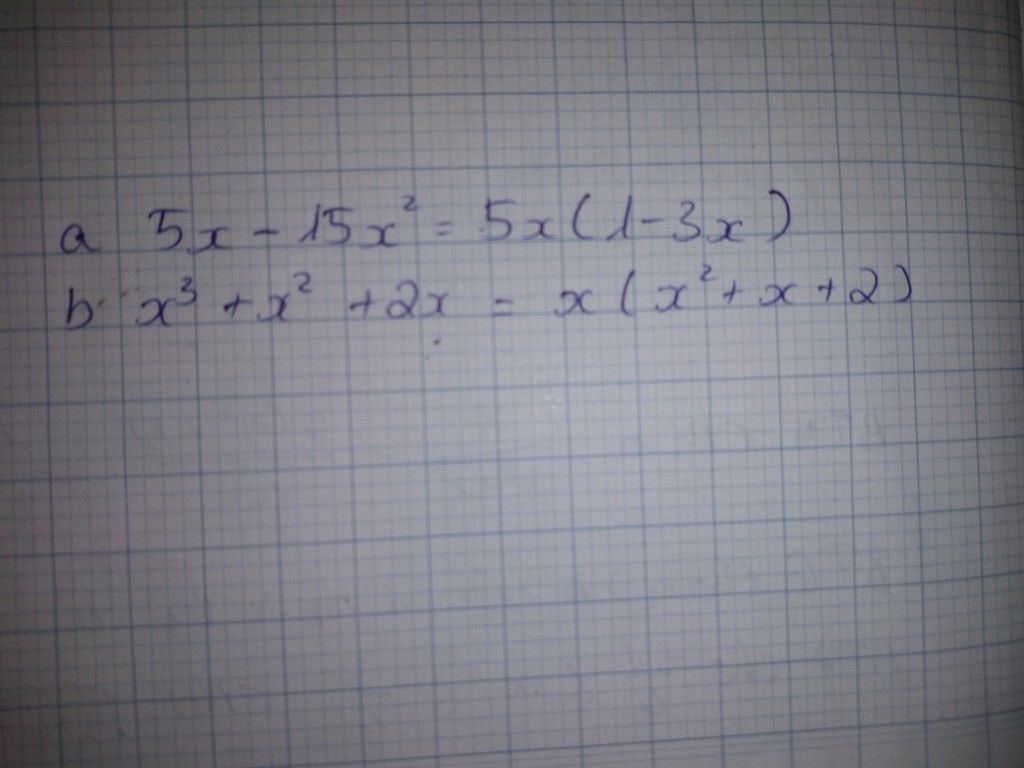 a 5x - 15x² = 5x(1-3x)
b. x³ + x² + 2x = x(x² + x + 2)